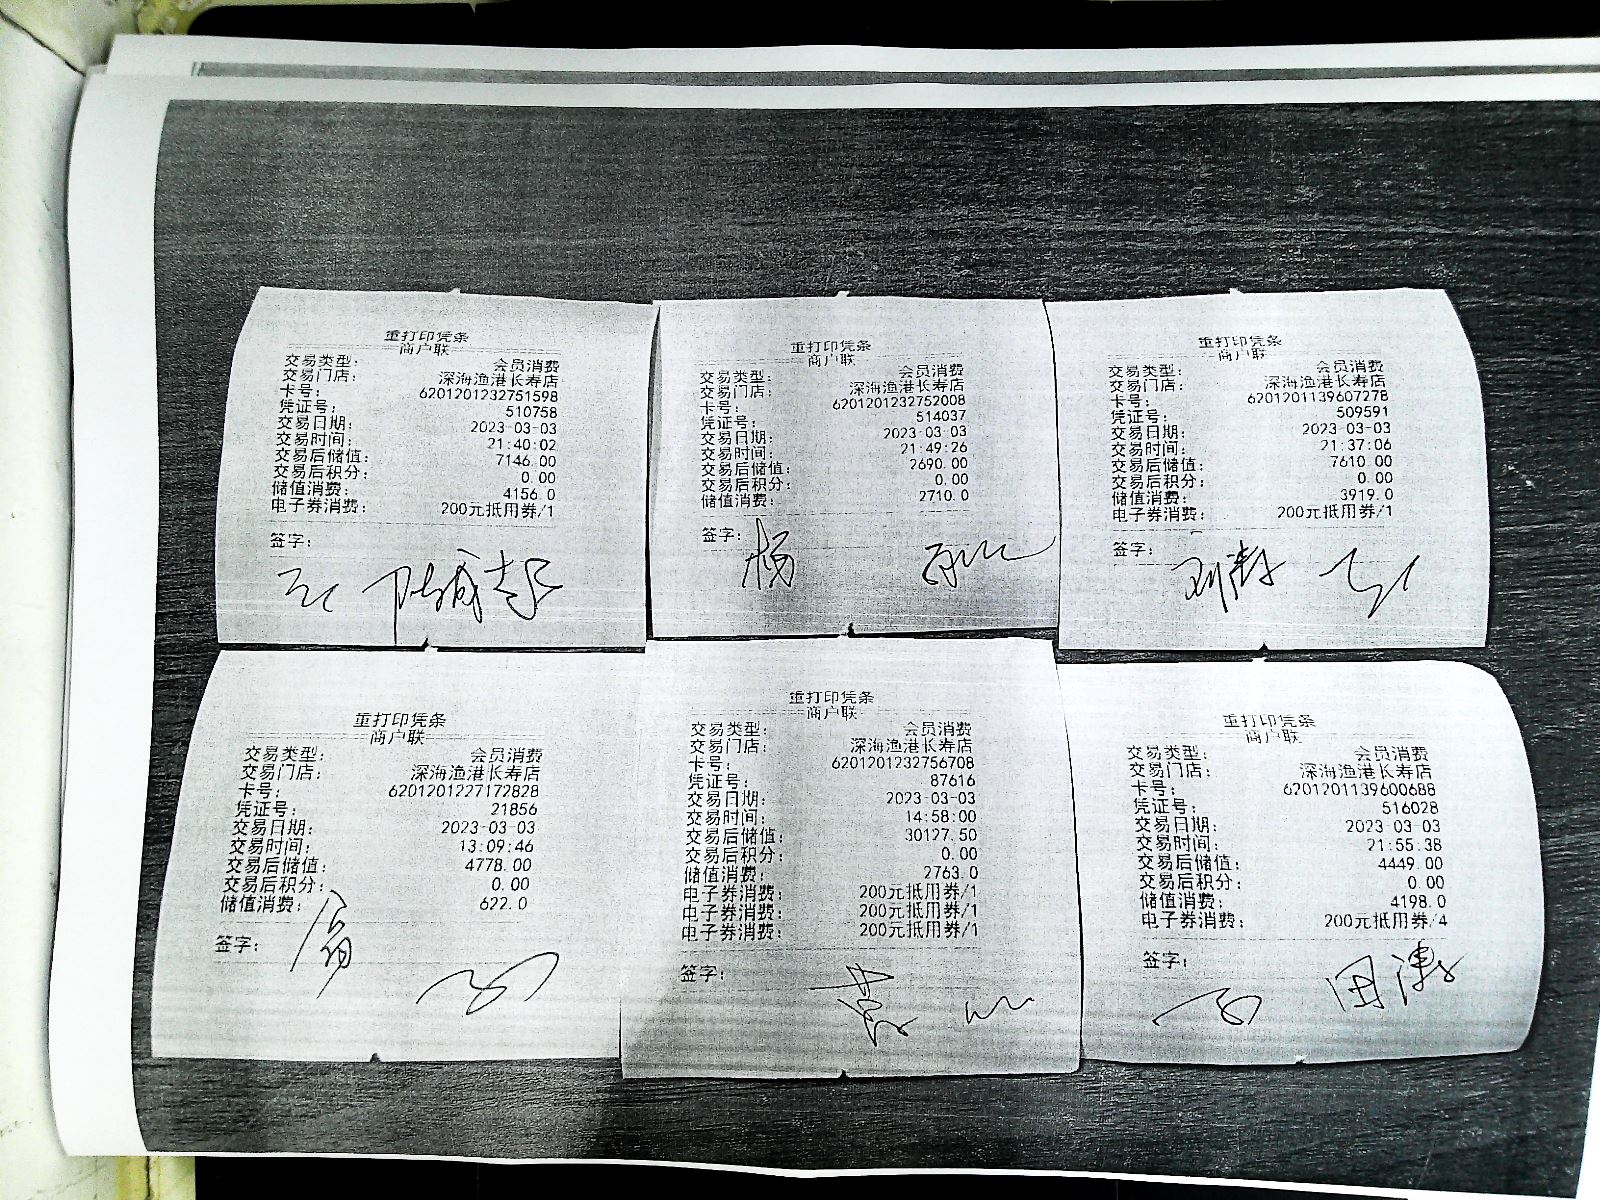 重打印凭条
商户联
交易类型: 会员消费
交易门店: 深海渔港长寿店
卡号: 6201201232751598
凭证号: 510758
交易日期: 2023-03-03
交易时间: 21:40:02
交易后储值: 7146.00
交易后积分: 0.00
储值消费: 4156.0
电子券消费: 200元抵用券/1
签字:
重打印凭条
商户联
交易类型: 会员消费
交易门店: 深海渔港长寿店
卡号: 6201201232752008
凭证号: 514037
交易日期: 2023-03-03
交易时间: 21:49:26
交易后储值: 2690.00
交易后积分: 0.00
储值消费: 2710.0
签字:
杨
重打印凭条
商户联
交易类型: 会员消费
交易门店: 深海渔港长寿店
卡号: 6201201139607278
凭证号: 509591
交易日期: 2023-03-03
交易时间: 21:37:06
交易后储值: 7610.00
交易后积分: 0.00
储值消费: 3919.0
电子券消费: 200元抵用券/1
签字:
重打印凭条
商户联
交易类型: 会员消费
交易门店: 深海渔港长寿店
卡号: 6201201227172828
凭证号: 21856
交易日期: 2023-03-03
交易时间: 13:09:46
交易后储值: 4778.00
交易后积分: 0.00
储值消费: 622.0
签字:
重打印凭条
商户联
交易类型: 会员消费
交易门店: 深海渔港长寿店
卡号: 6201201232756708
凭证号: 87616
交易日期: 2023-03-03
交易时间: 14:58:00
交易后储值: 30127.50
交易后积分: 0.00
储值消费: 2763.0
电子券消费: 200元抵用券/1
电子券消费: 200元抵用券/1
电子券消费: 200元抵用券/1
签字:
重打印凭条
商户联
交易类型: 会员消费
交易门店: 深海渔港长寿店
卡号: 6201201139600688
凭证号: 516028
交易日期: 2023-03-03
交易时间: 21:55:38
交易后储值: 4449.00
交易后积分: 0.00
储值消费: 4198.0
电子券消费: 200元抵用券/4
签字: